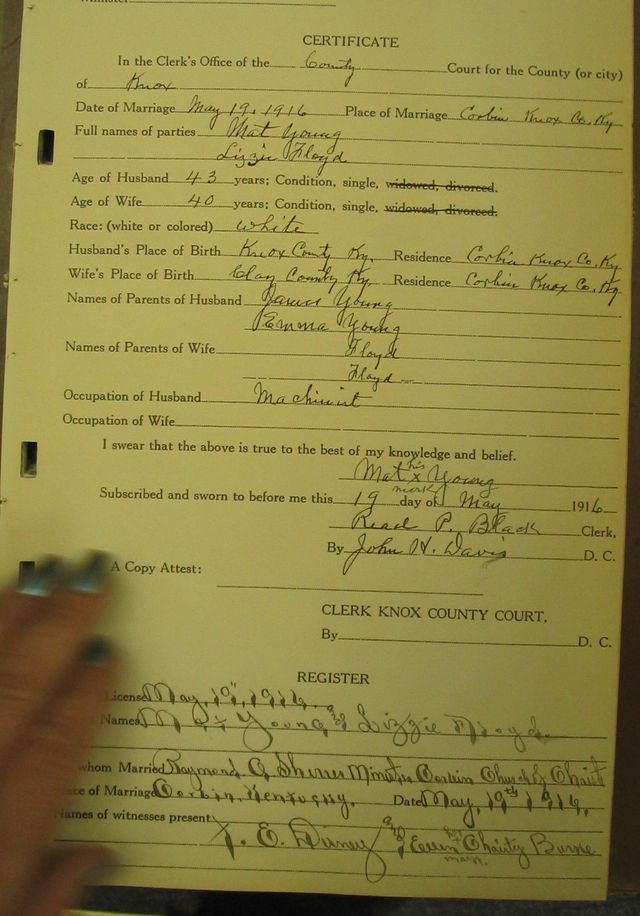 CERTIFICATE
In the Clerk's Office of the County Court for the County (or city)
of Knox
Date of Marriage May 19, 1916 Place of Marriage Corbin Knox Co. Ky
Full names of parties Mat Young
Lizzie Floyd
Age of Husband 43 years; Condition, single, widowed, divorced.
Age of Wife 40 years; Condition, single, widowed, divorced.
Race: (white or colored) White
Husband's Place of Birth Knox County Ky. Residence Corbin Knox Co. Ky
Wife's Place of Birth Clay County Ky. Residence Corbin Knox Co. Ky
Names of Parents of Husband James Young
Emma Young
Names of Parents of Wife Floyd
Floyd
Occupation of Husband Machinist
Occupation of Wife
I swear that the above is true to the best of my knowledge and belief.
Mat his x mark Young
Subscribed and sworn to before me this 19 day of May 1916
Read P. Black Clerk,
By John H. Davis D. C.
A Copy Attest:
CLERK KNOX COUNTY COURT,
By D. C.
REGISTER
License May, 19", 1916.
Names Mat Young & Lizzie Floyd.
whom Married Raymond G Minister Corbin Church of Christ
ce of Marriage Corbin, Kentucky. Date May, 19th 1916.
Names of witnesses present
T. E. Disney & her x mark Charity